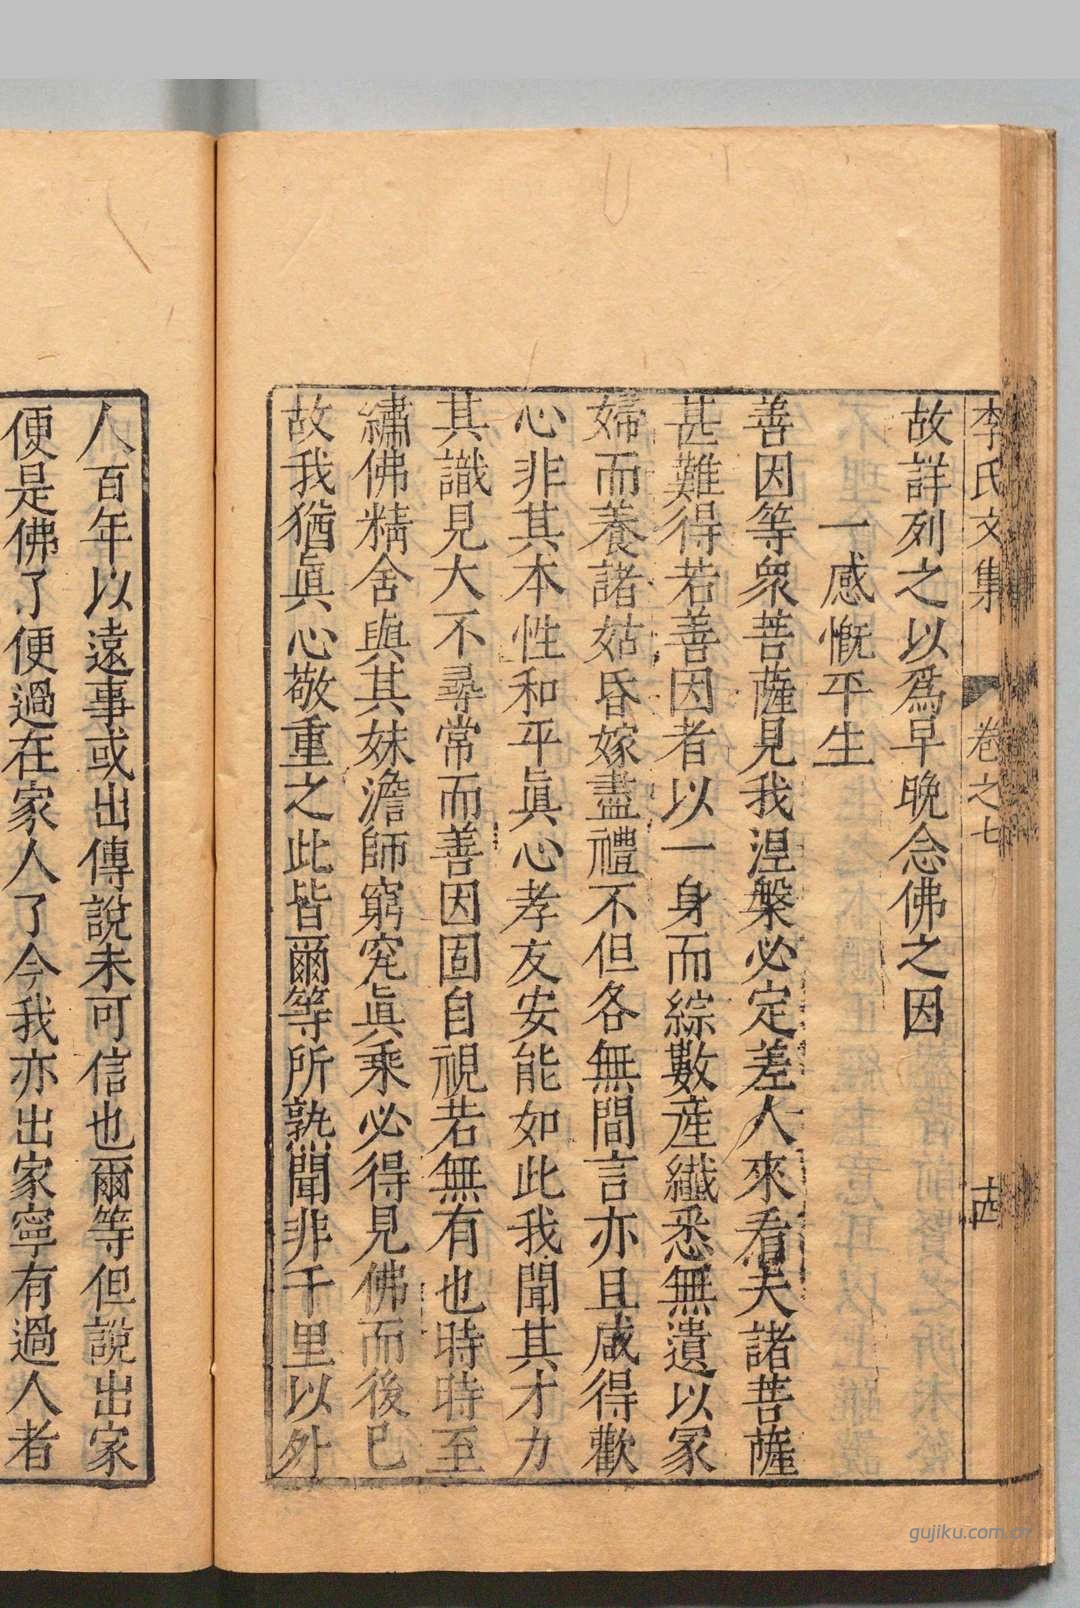 李氏文集 卷之七 十四
故詳列之以爲早晚念佛之因
一感慨平生
善因等衆菩薩見我涅槃必定差人來看夫諸菩薩
甚難得若善因者以一身而綜數産纖悉無遺以冢
婦而養諸姑昏嫁盡禮不但各無間言亦且咸得歡
心非其本性和平眞心孝友安能如此我聞其才力
其識見大不尋常而善因固自視若無有也時時至
繡佛精舍與其妹澹師窮究眞乘必得見佛而後已
故我猶眞心敬重之此皆爾等所孰聞非千里以外
人百年以遠事或出傳說未可信也爾等但說出家
便是佛了便過在家人了今我亦出家寧有過人者
gujiku.com.cn